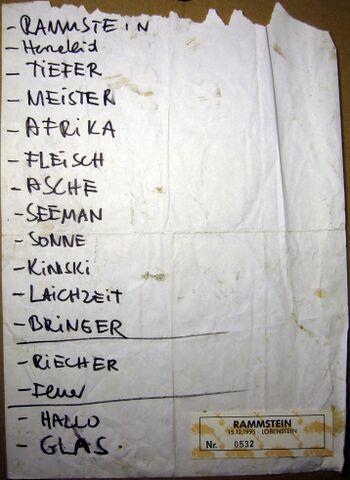 - RAMMSTEIN
- Herzeleid
- TIEFER
- MEISTER
- AFRIKA
- FLEISCH
- ASCHE
- SEEMAN
- SONNE
- KINSKI
- LAICHZEIT
- BRINGER
- RIECHER
- Feuer
- HALLO
- GLAS
RAMMSTEIN
15.12.1995 - LOBENSTEIN
Nr. 0532